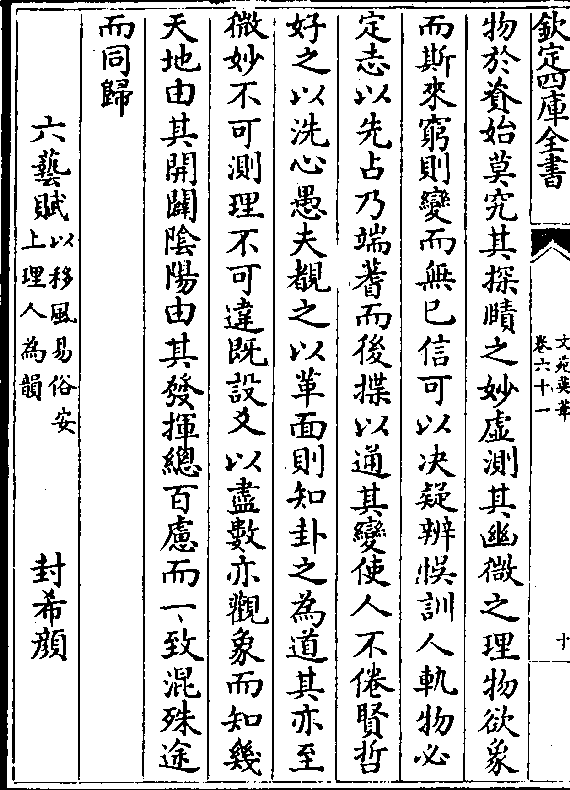 欽定四庫全書
文苑英華
卷六十一
十
物於資始莫究其探賾之妙虛測其幽微之理物欲象
而斯來窮則變而無已信可以决疑辨悞訓人軌物必
定志以先占乃端蓍而後揲以通其變使人不倦賢哲
好之以洗心愚夫覩之以革面則知卦之為道其亦至
微妙不可測理不可違既設爻以盡數亦觀象而知幾
天地由其開闢陰陽由其發揮總百慮而一致混殊途
而同歸
六藝賦
以移風易俗安
上理人為韻
封希顔